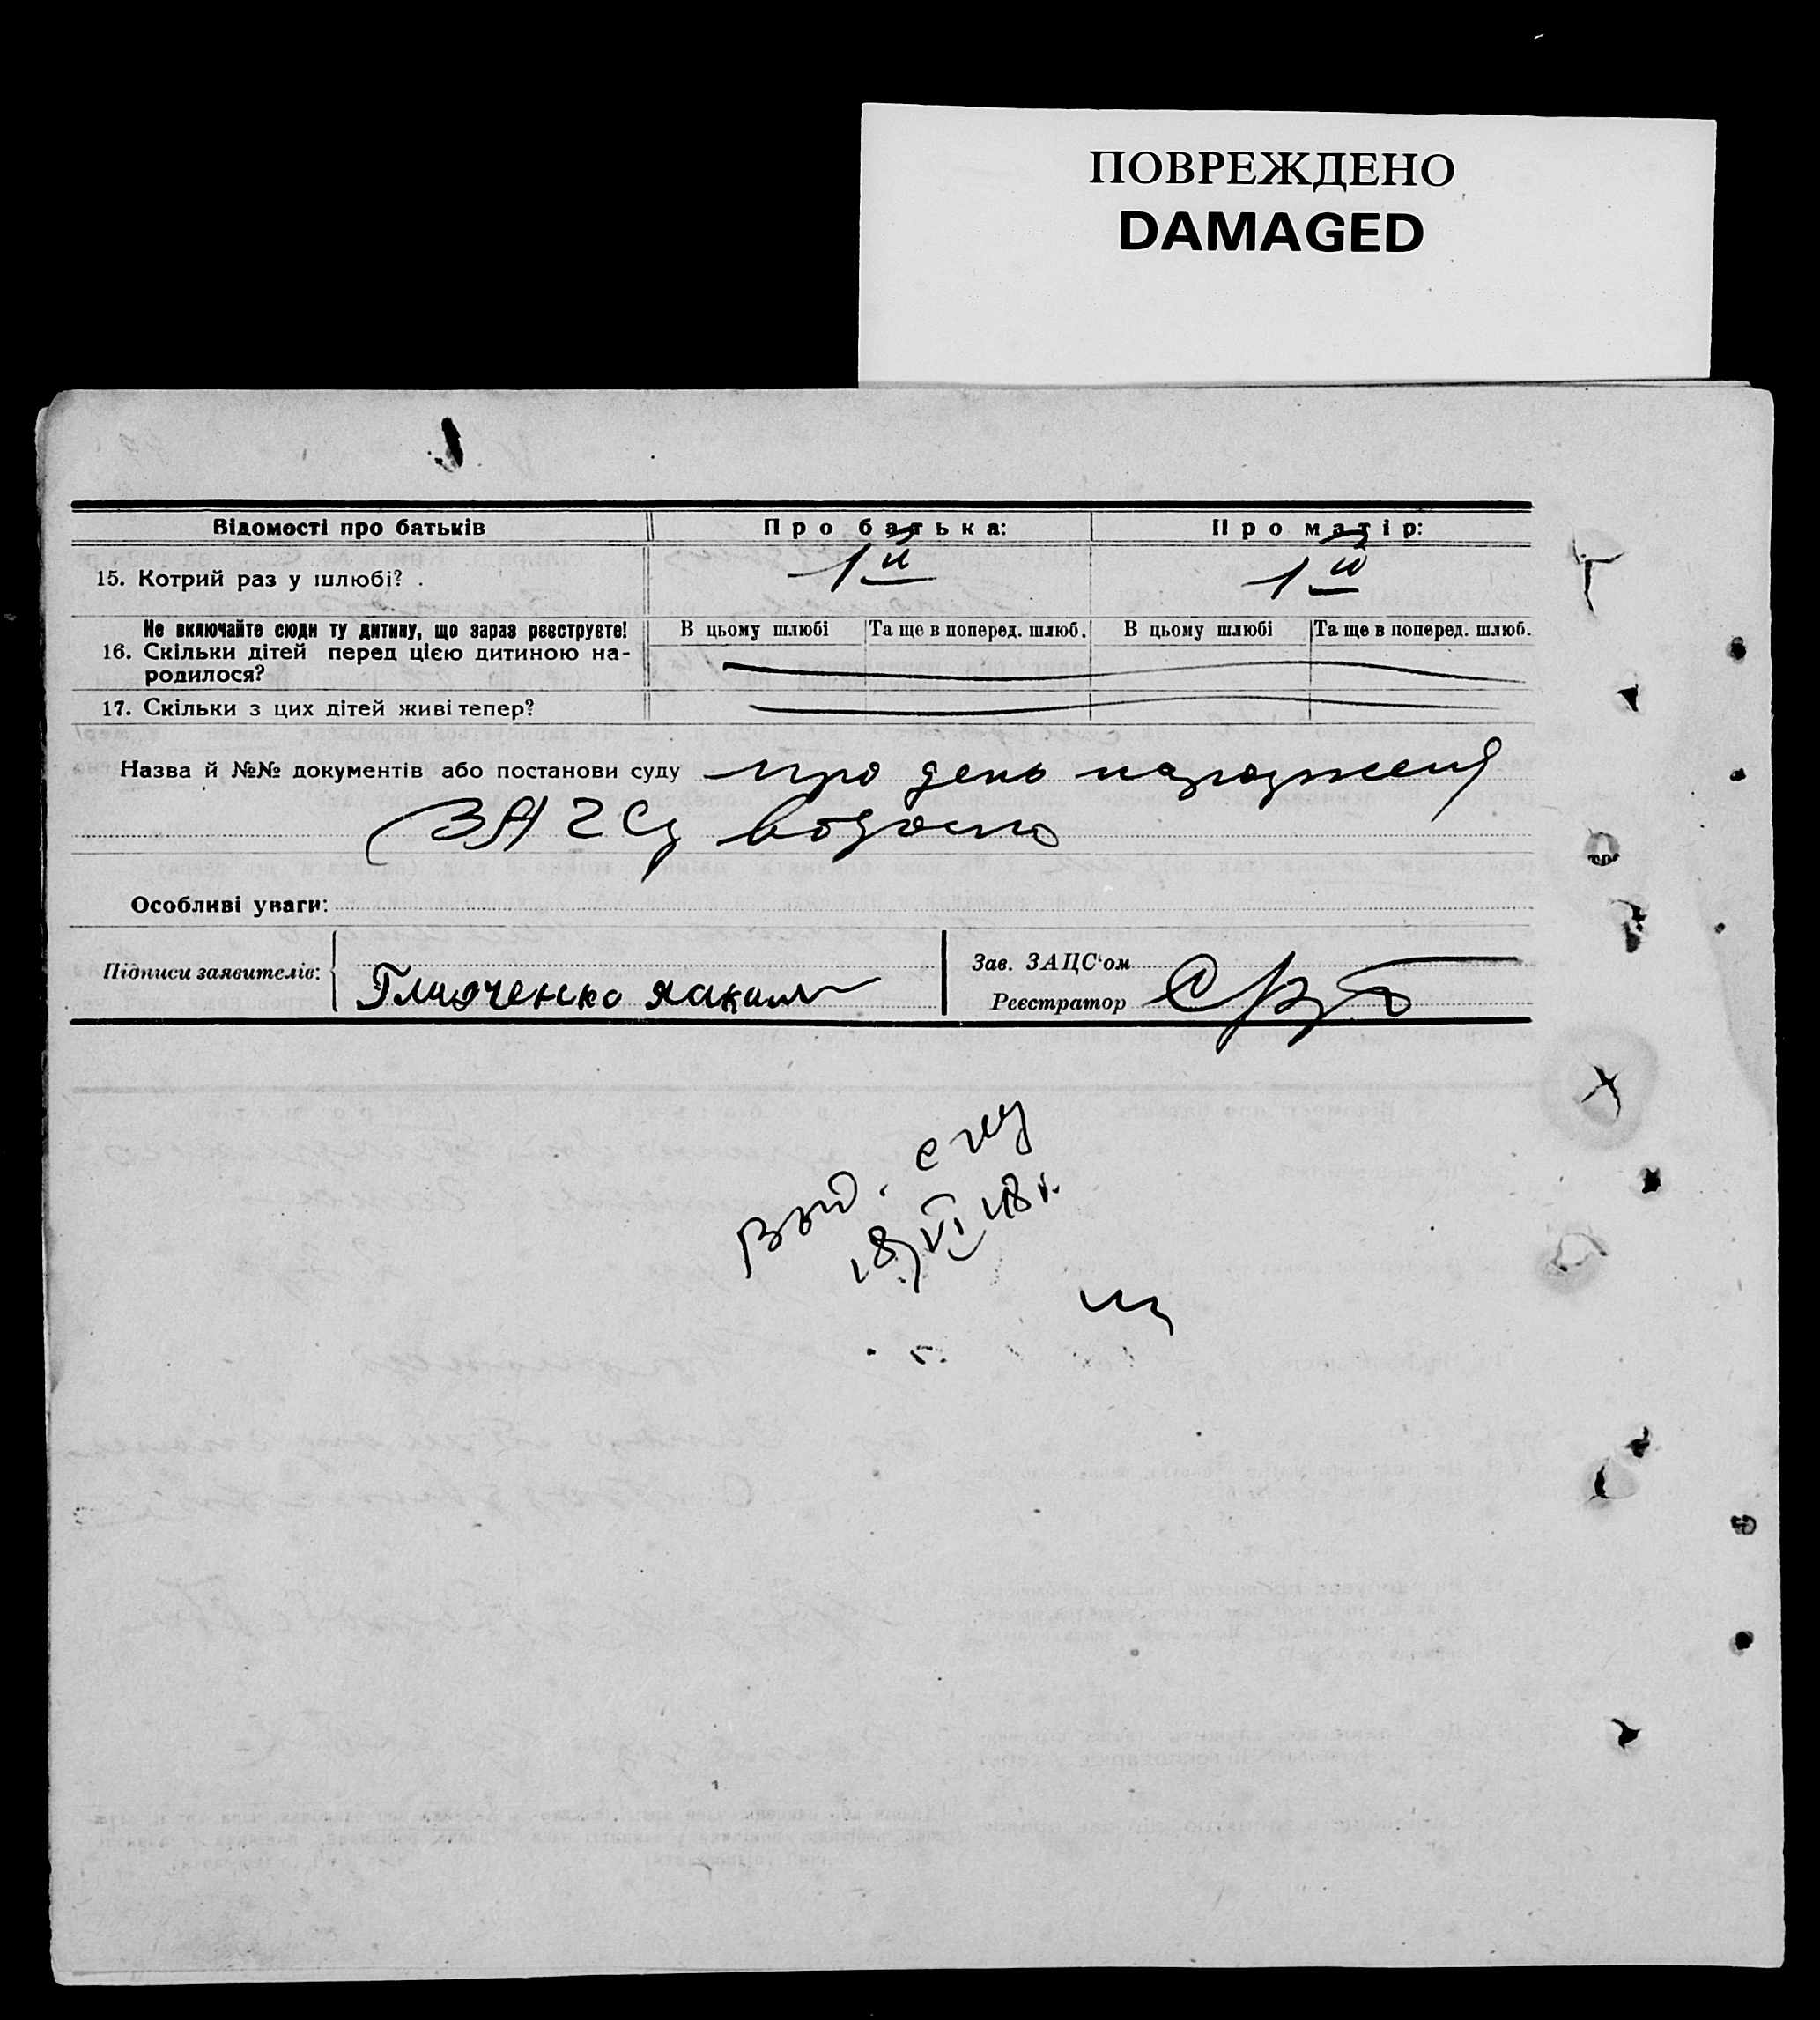 ПОВРЕЖДЕНО
DAMAGED
Відомості про батьків Про батька: Про матір:
15. Котрий раз у шлюбі? . 1й 1й
Не включайте сюди ту дитину, що зараз реєструєте! В цьому шлюбі Та ще в поперед. шлюб. В цьому шлюбі Та ще в поперед. шлюб.
16. Скільки дітей перед цією дитиною на-
родилося?
17. Скільки з цих дітей живі тепер?
Назва й №№ документів або постанови суду про день народження
ЗАГСу відомо
Особливі уваги:
Підписи заявителів: Зав. ЗАЦС'ом
Реєстратор
18/VI 48 г.